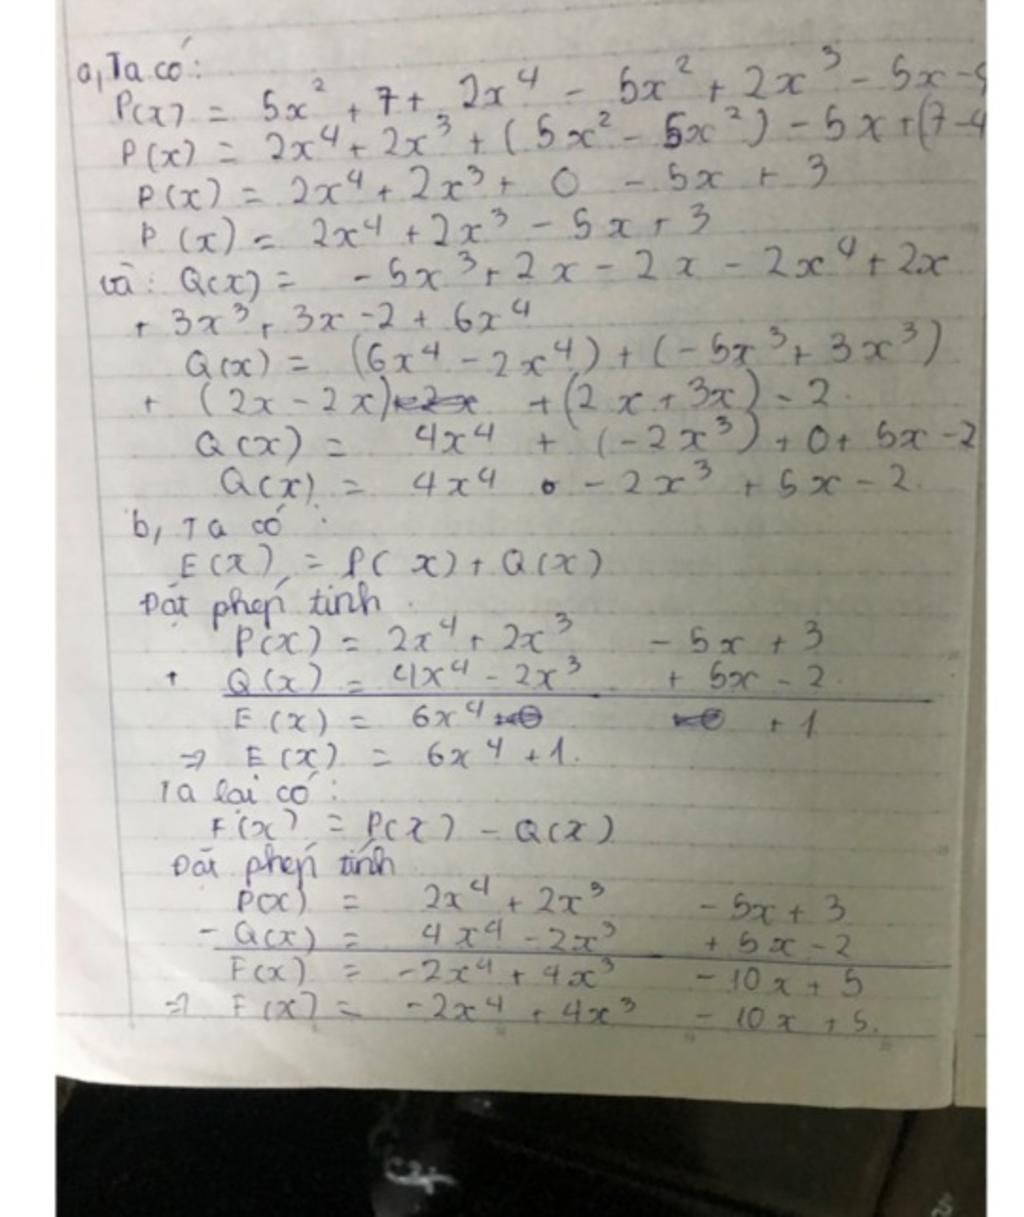 a, Ta có:
P(x) = 5x² + 7 + 2x⁴ - 5x² + 2x³ - 5x -
P(x) = 2x⁴ + 2x³ + (5x² - 5x²) - 5x + (7-4
P(x) = 2x⁴ + 2x³ + 0 - 5x + 3
P(x) = 2x⁴ + 2x³ - 5x + 3
và: Q(x) = -5x³ + 2x - 2x - 2x⁴ + 2x
+ 3x³ + 3x - 2 + 6x⁴
Q(x) = (6x⁴ - 2x⁴) + (-5x³ + 3x³)
+ (2x - 2x) + (2x + 3x) - 2.
Q(x) = 4x⁴ + (-2x³) + 0 + 5x - 2
Q(x) = 4x⁴ - 2x³ + 5x - 2.
b, Ta có:
E(x) = P(x) + Q(x)
Đặt phép tính.
P(x) = 2x⁴ + 2x³ - 5x + 3
+ Q(x) = 4x⁴ - 2x³ + 5x - 2.
E(x) = 6x⁴ + 1
⇒ E(x) = 6x⁴ + 1.
Ta lại có:
F(x) = P(x) - Q(x)
Đặt phép tính
P(x) = 2x⁴ + 2x³ - 5x + 3
- Q(x) = 4x⁴ - 2x³ + 5x - 2
F(x) = -2x⁴ + 4x³ - 10x + 5
⇒ F(x) = -2x⁴ + 4x³ - 10x + 5.